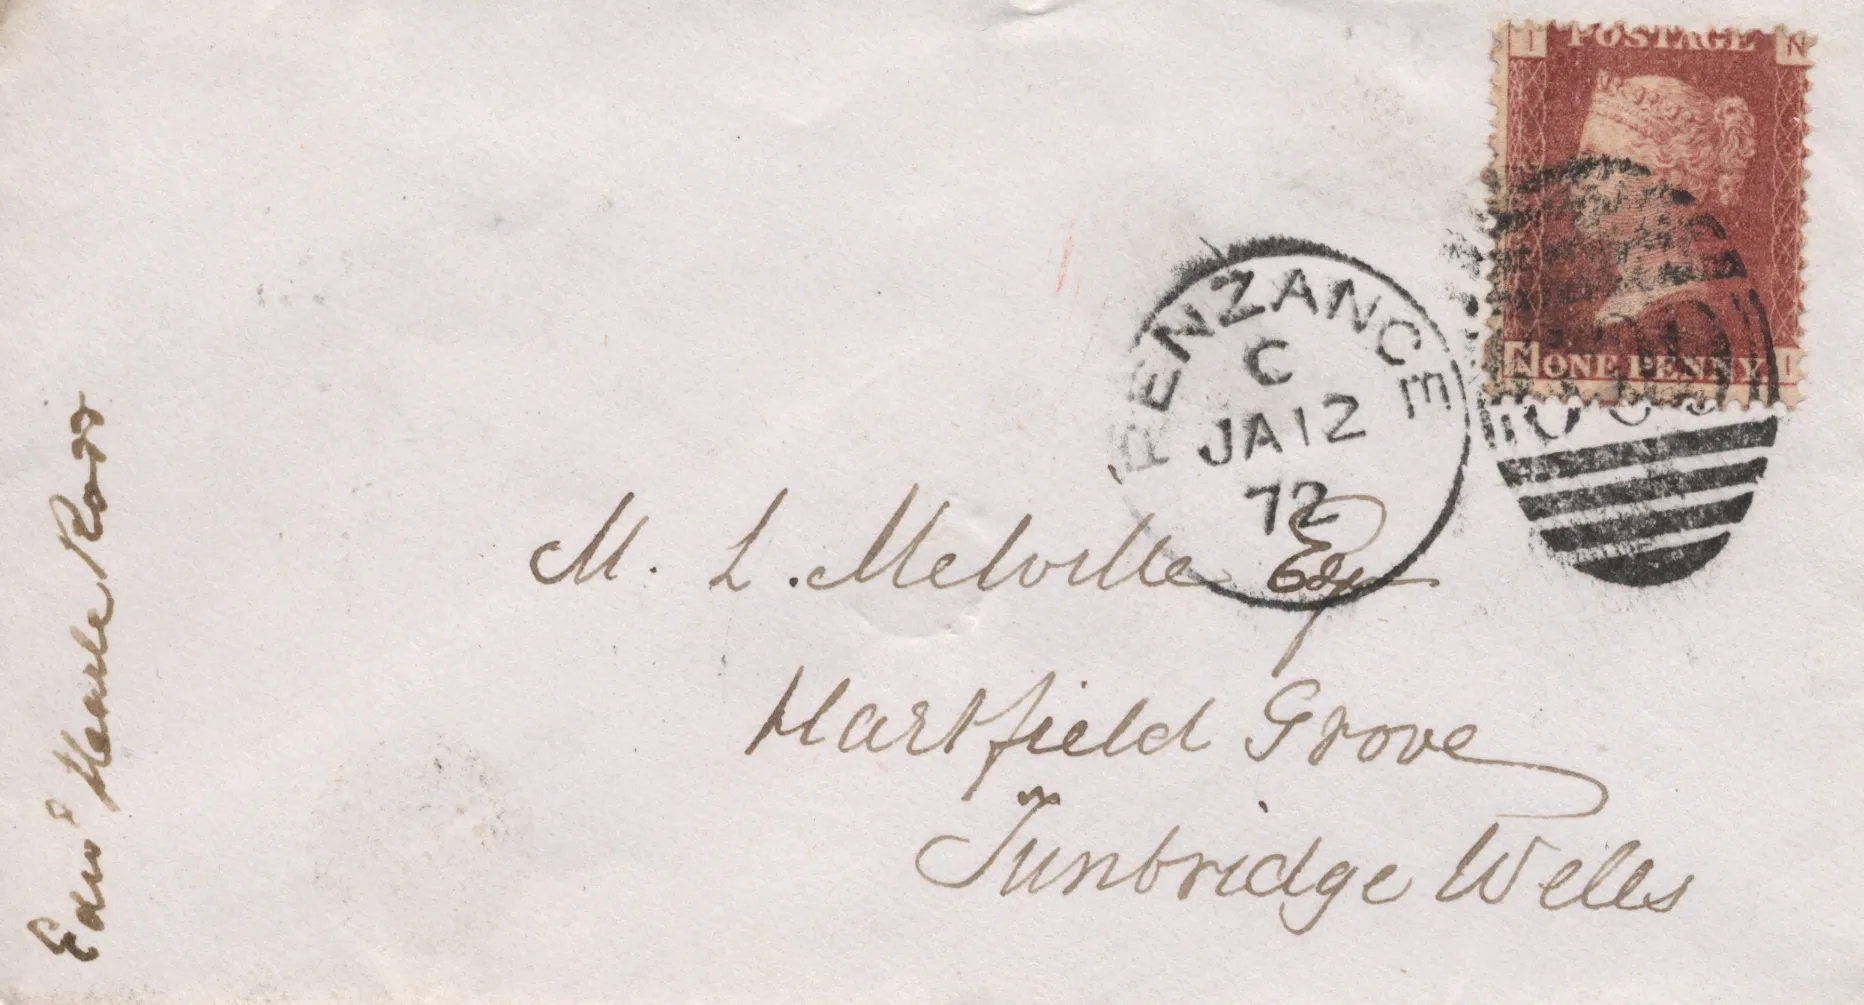 I POSTAGE N
N ONE PENNY I
PENZANCE
C
JA 12
72
M. L. Melville Esq
Hartfield Grove
Tunbridge Wells
Edwd Hearle Rodd